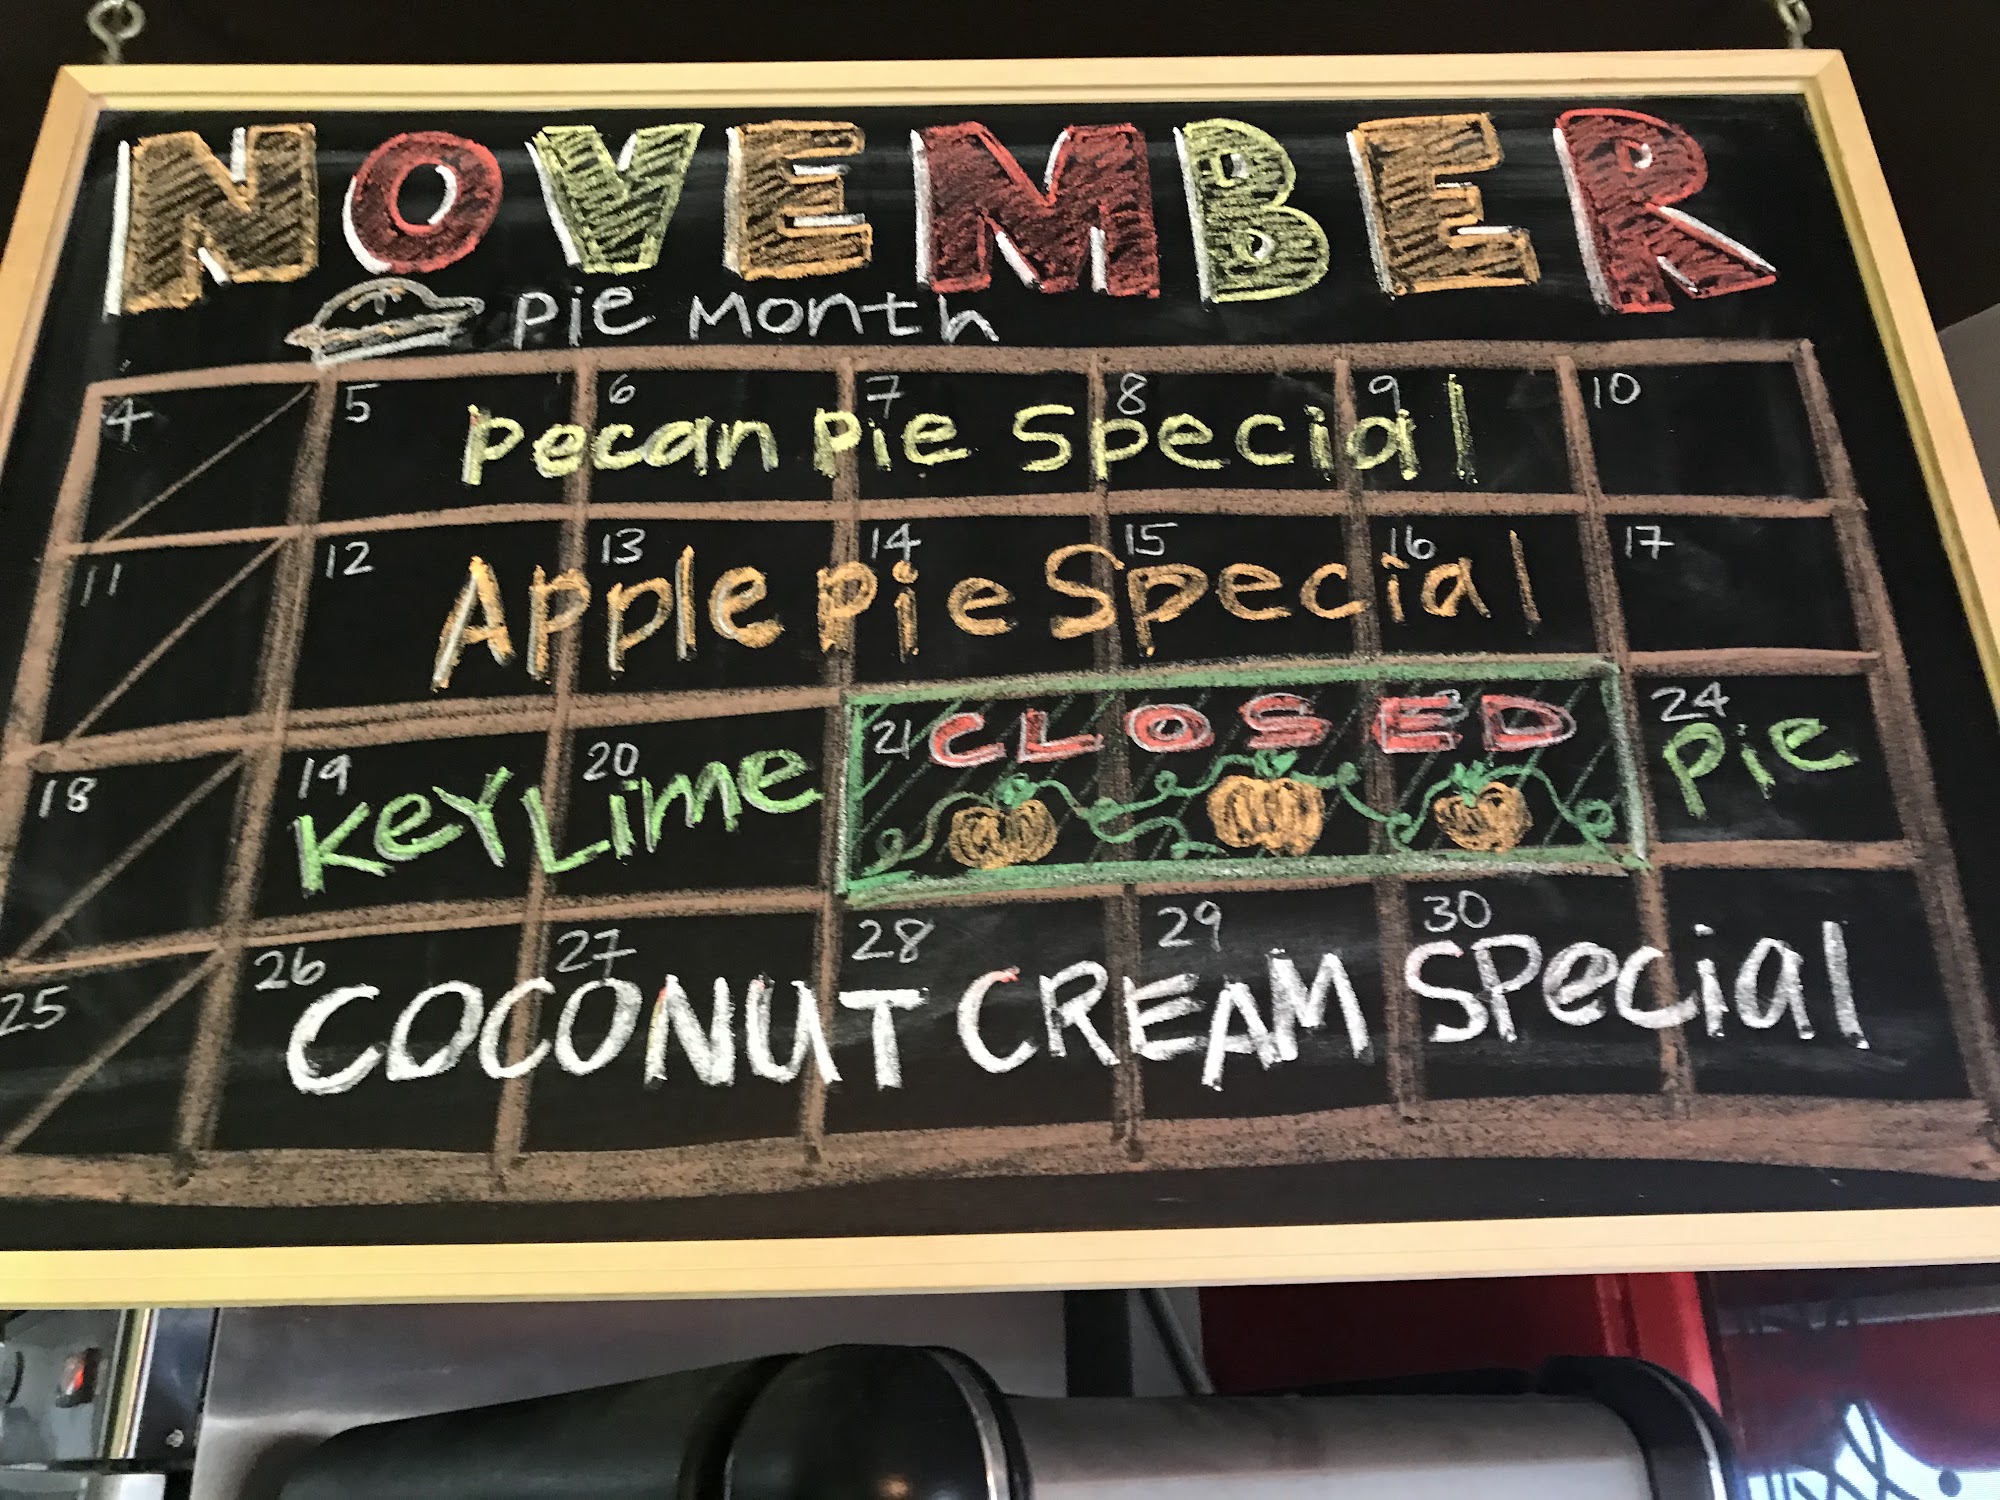 NOVEMBER
Pie Month
4 5 6 7 8 9 10
Pecan Pie Special
11 12 13 14 15 16 17
Apple Pie Special
18 19 20 21 CLOSED 24
Key Lime Pie
25 26 27 28 29 30
COCONUT CREAM Special